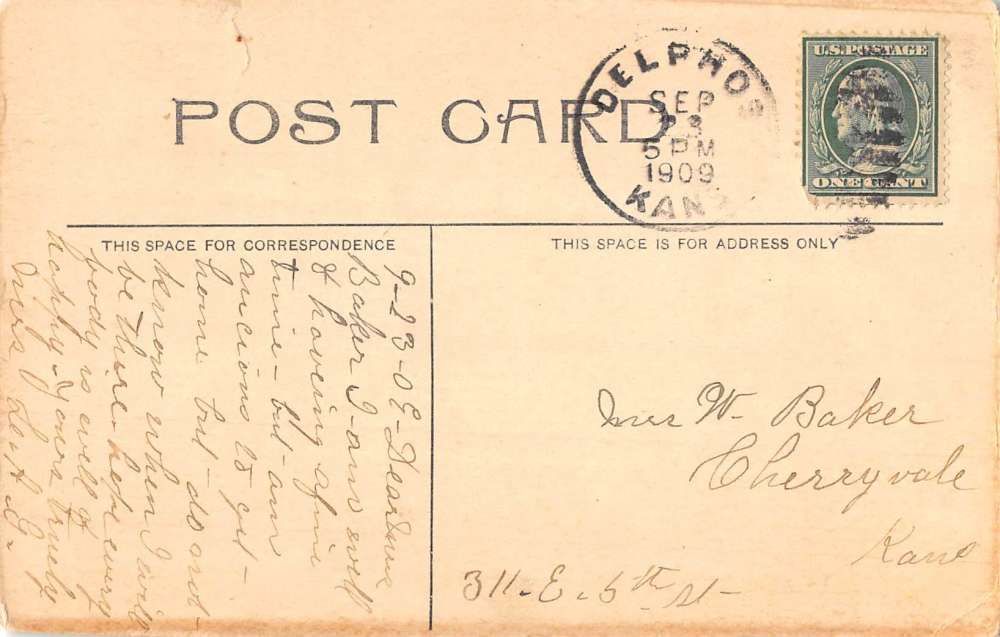 POST CARD
DELPHOS
SEP
23
5 PM
1909
KANS
U.S. POSTAGE
ONE CENT
THIS SPACE FOR CORRESPONDENCE
THIS SPACE IS FOR ADDRESS ONLY
9-23-0
Baker I am well
& haveing a fine
time - but - am
ancious to get -
home but - do not -
know when I will
be there - hope every
body is well &
happy - yours truely
Mrs.
Mrs W. Baker
Cherryvale
Kans
311. E. 5th St -